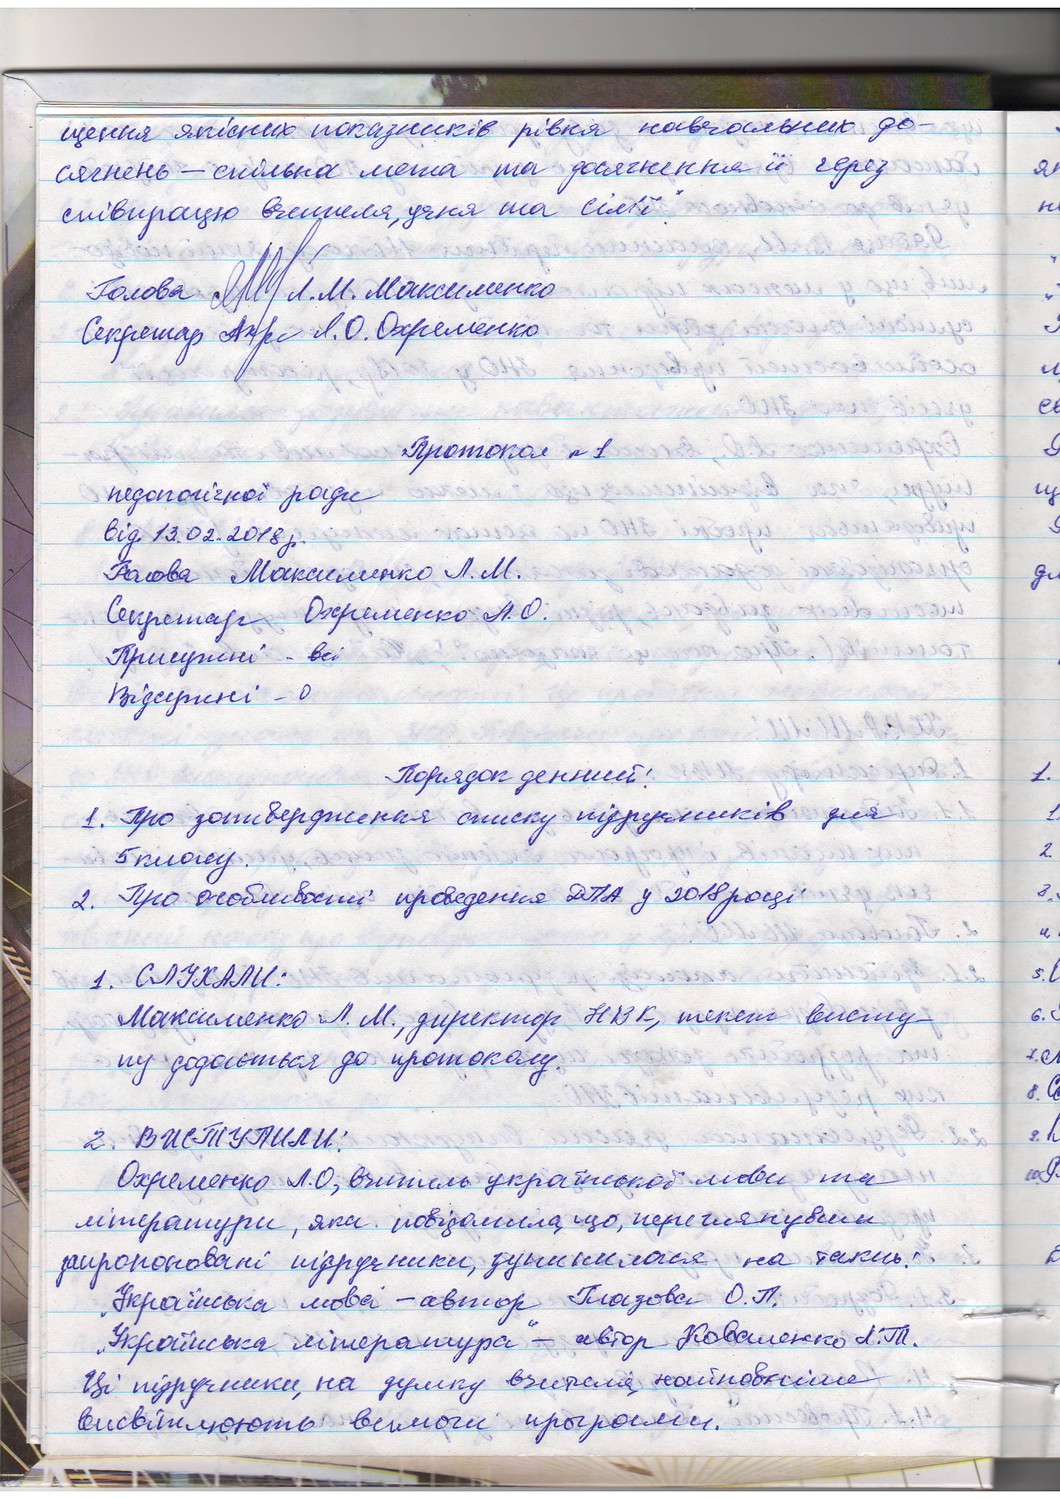 щення якісних показників рівня навчальних до-
сягнень — спільна мета та досягнення її через
співпрацю вчителя, учня та сім'ї"
Голова Л. М. Максименко
Секретар Л. О. Охременко
Протокол №1
педагогічної ради
від 13.02.2018р.
Голова Максименко Л.М.
Секретар Охременко Л.О.
Присутні - всі
Відсутні - 0
Порядок денний:
1. Про затвердження списку підручників для
5 класу.
2. Про особливості проведення ДПА у 2018 році
1. СЛУХАЛИ:
Максименко Л. М., директор НВК, текст висту-
пу додається до протоколу.
2. ВИСТУПИЛИ:
Охременко Л.О, вчитель української мови та
літератури, яка повідомила, що, переглянувши
запропоновані підручники, зупинилася на таких:
„Українська мова — автор Глазова О.П.
„Українська література" — автор Коваленко Л.Т.
Ці підручники, на думку вчителя, найповніше
висвітлюють вимоги програми."